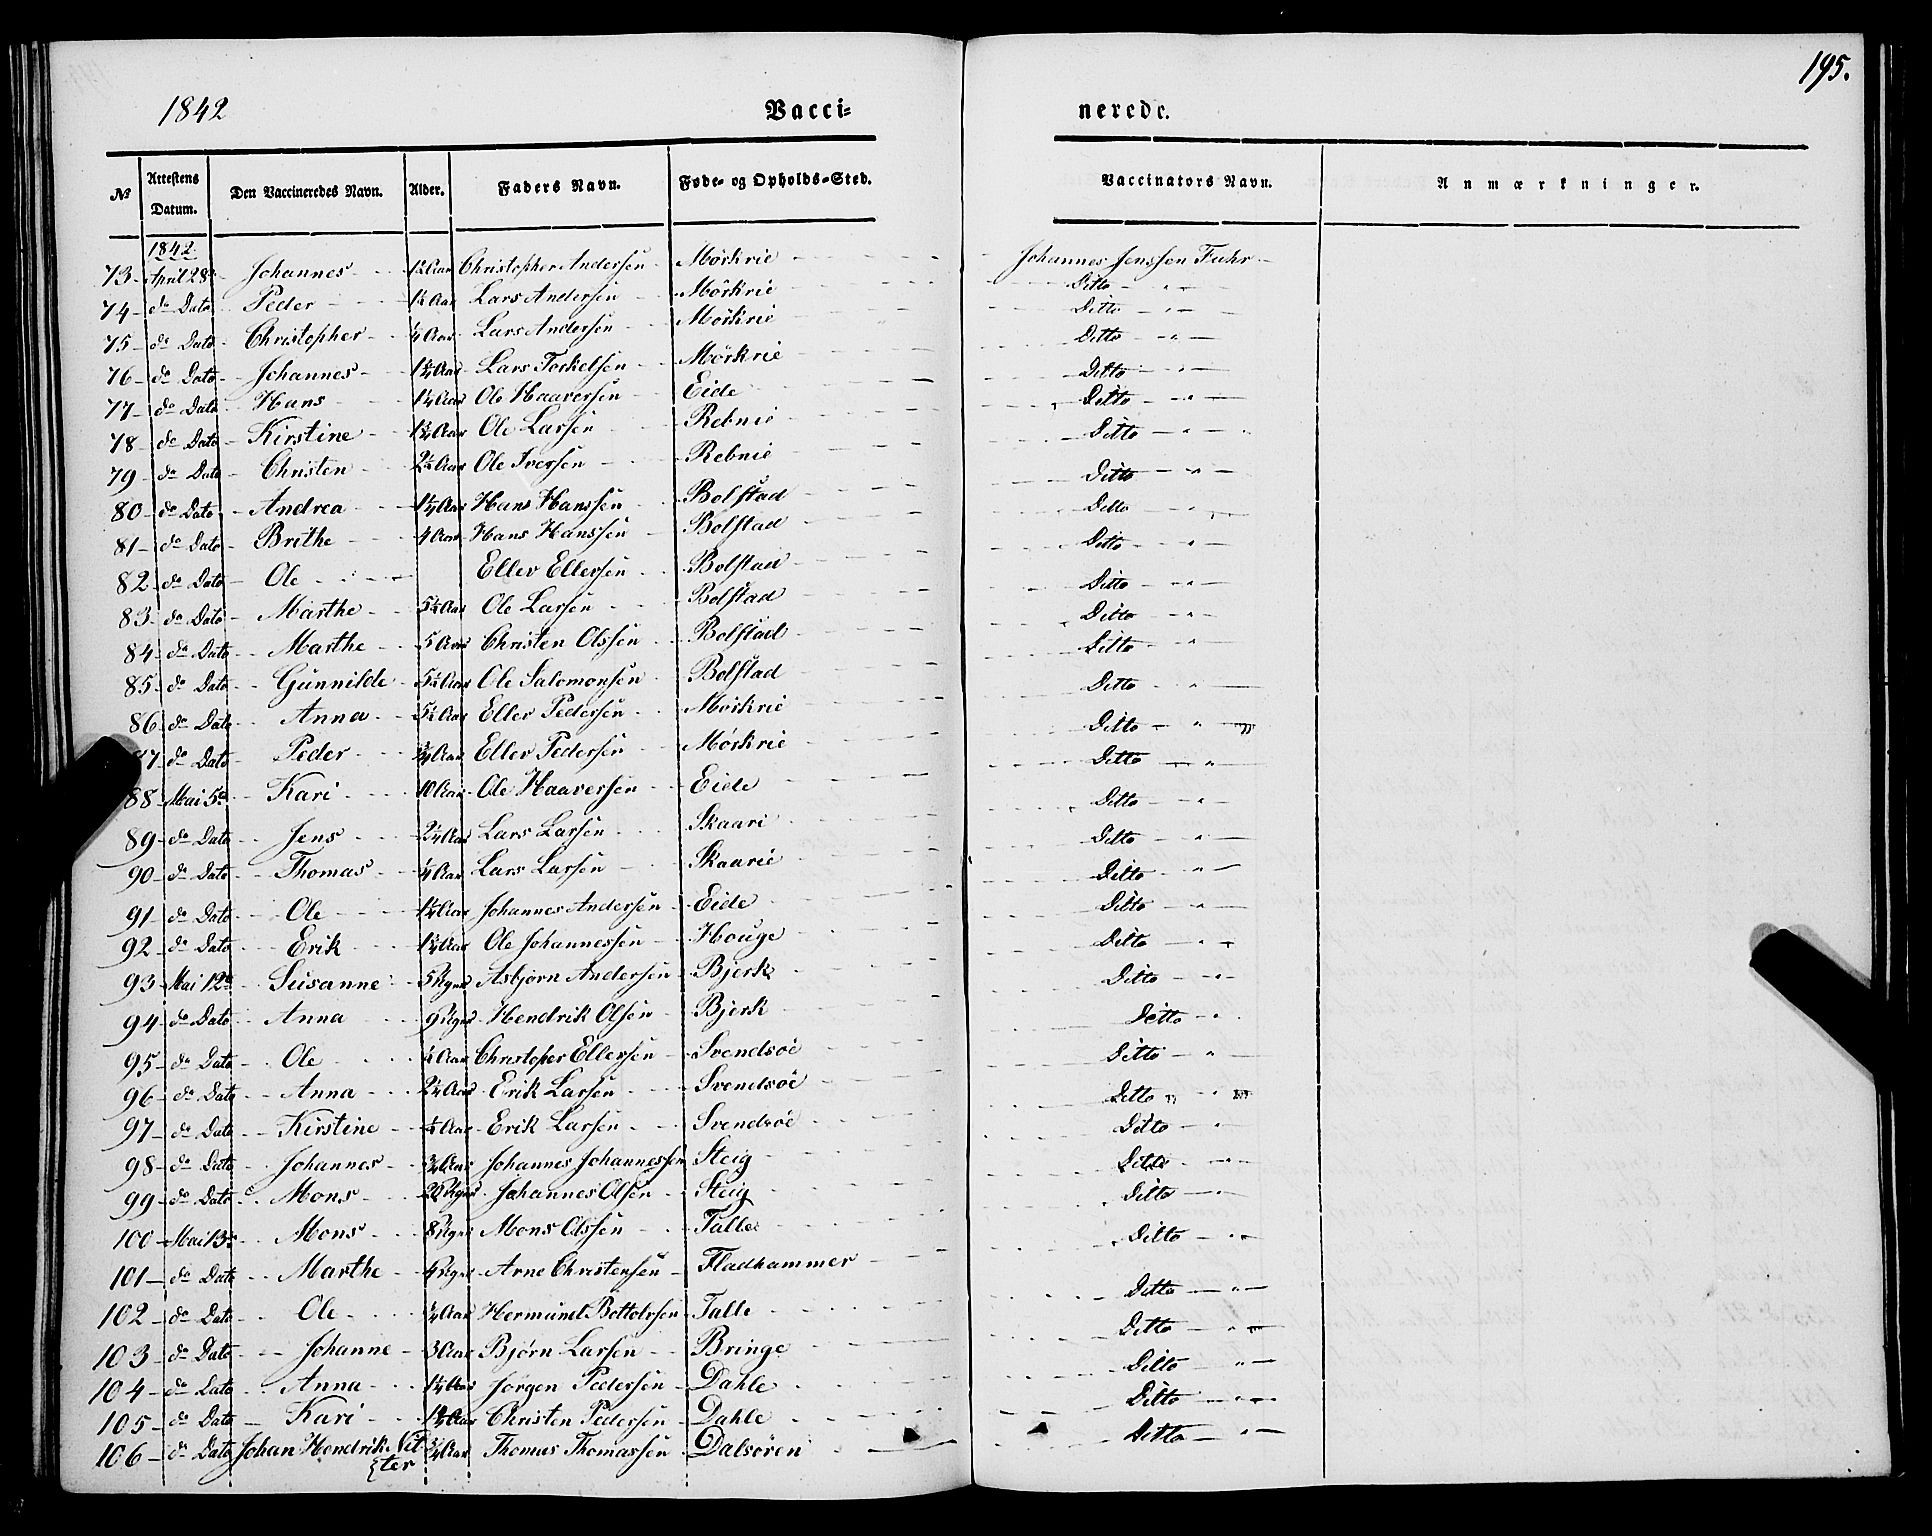 195.
1842 Vacci= nerede.
No Attestens Datum. Den Vaccineredes Navn. Alder. Faders Navn. Føde- og Opholds-Sted. Vaccinators Navn. Anmærkninger.
1842
73 April 28 Johannes Aar Christopher Andersen Mörkrie Johannes Jenssen Fuhr
74 do Dato Peder Aar Lars Andersen Mörkrie Ditto "
75 do Dato Christopher Aar Lars Andersen Mörkrie Ditto "
76 do Dato Johannes Aar Lars Torkelsen Mörkrie Ditto "
77 do Dato Hans 1¼ Aar Ole Haaversen Eide Ditto "
78 do Dato Kirstine Aar Ole Larsen Rebnie Ditto "
79 do Dato Christen Aar Ole Iversen Rebnie Ditto "
80 do Dato Andrea Aar Hans Hanssen Bolstad Ditto "
81 do Dato Brithe 4 Aar Hans Hanssen Bolstad Ditto "
82 do Dato Ole Eller Ellersen Bolstad Ditto "
83 do Dato Marthe Aar Ole Larsen Bolstad Ditto "
84 do Dato Marthe 5 Aar Christen Olssen Bolstad Ditto "
85 do Dato Gunnilde Aar Ole Salomonsen Bolstad Ditto "
86 do Dato Anna Aar Eller Pedersen Mörkrie Ditto "
87 do Dato Peder Aar Eller Pedersen Mörkrie Ditto "
88 Mai 5 Kari 10 Aar Ole Haaversen Eide Ditto "
89 do Dato Jens Aar Lars Larsen Skaari Ditto "
90 do Dato Thomas Aar Lars Larsen Skaarie Ditto "
91 do Dato Ole Aar Johannes Andersen Eide Ditto "
92 do Dato Erik Aar Ole Johannessen Houge Ditto "
93 Mai 12 Susanne Asbjørn Andersen Bjerk Ditto "
94 do Dato Anna Hendrik Olsen Bjerk Ditto "
95 do Dato Ole Aar Christopher Ellersen Svendsöe Ditto "
96 do Dato Anna Aar Erik Larsen Svendsöe Ditto "
97 do Dato Kirstine Aar Erik Larsen Svendsöe Ditto "
98 do Dato Johannes Aar Johannes Johannessen Steig Ditto "
99 do Dato Mons Johannes Olsen Steig Ditto "
100 Mai 13 Mons Mons Olssen Talle Ditto "
101 do Dato Marthe Arne Christensen Fladhammer Ditto "
102 do Dato Ole Aar Hermund Bottolvsen Talle Ditto "
103 do Dato Johanne 3 Aar Bjørn Larsen Bringe Ditto "
104 do Dato Anna Aar Jørgen Pedersen Dahle Ditto "
105 do Dato Kari Aar Christen Pedersen Dahle Ditto "
106 do Dato Johan Hendrik Nit Aar Thomas Thomassen Dalsören Ditto "
ter